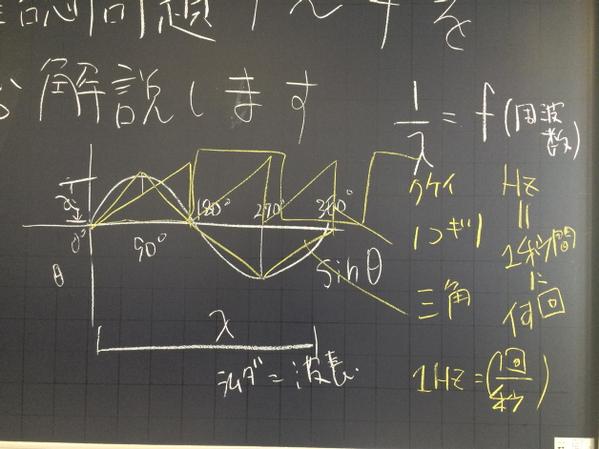 認問題なんかを
お解説します
1/λ = f(周波数)
a
0°
90°
180°
270°
360°
θ
sinθ
λ
ラムダ=波長
クケイ
ノコギリ
三角
Hz
=
1秒間
に
何回
1Hz=(1回/秒)